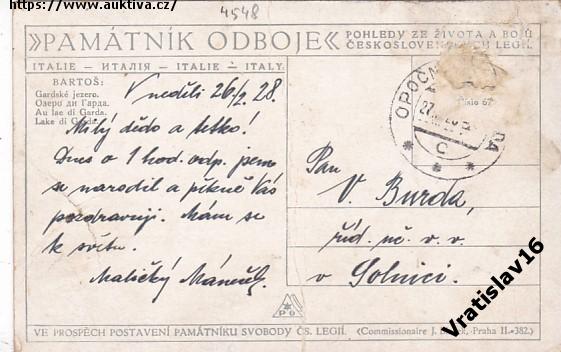 https://www.auktiva.cz/
4548
»PAMÁTNÍK ODBOJE«
POHLEDY ZE ŽIVOTA A BOJŮ
ČESKOSLOVENSKÝCH LEGIÍ.
ITALIE – ИТАЛІЯ – ITALIE – ITALY:
BARTOŠ:
Gardské jezero.
Озеро ди Гарда.
Au lac di Garda.
Lake di Garda.
Číslo 67
OPOČN
C
V neděli 26/2. 28.
Milý dědo a tetko!
Dnes o 1 hod. odp. jsem
se narodil a pěkně Vás
pozdravuji. Mám se
k světu.
Maličký
Pan
V. Burda,
říd. uč. v. v.
v Solnici.
Vratislav16
VE PROSPĚCH POSTAVENÍ PAMÁTNÍKU SVOBODY ČS. LEGIÍ. (Commissionaire J. Praha II.-382.)